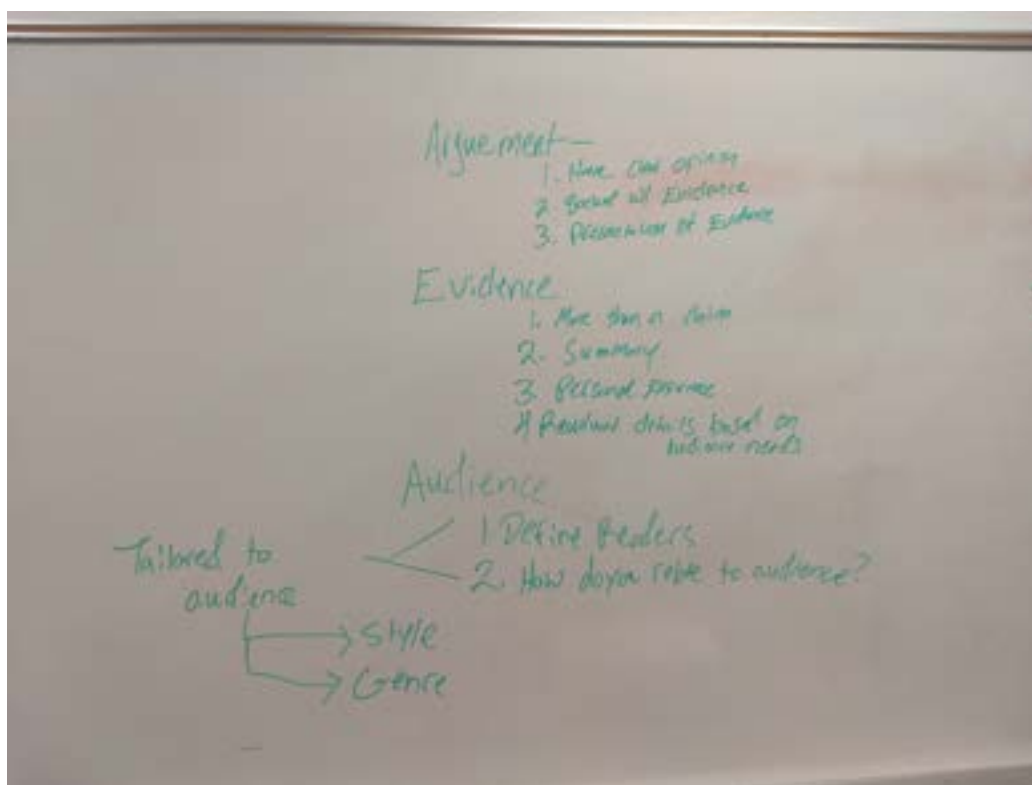 Arguement —
1. Have clear opinion
2. Backed w/ Evidence
3. Presentation of Evidence
Evidence
1. More than a claim
2. Summary
3. Personal
4 details based on
audience needs
Audience
1 Define Readers
2. How do you relate to audience?
Tailored to
audience
Style
Genre